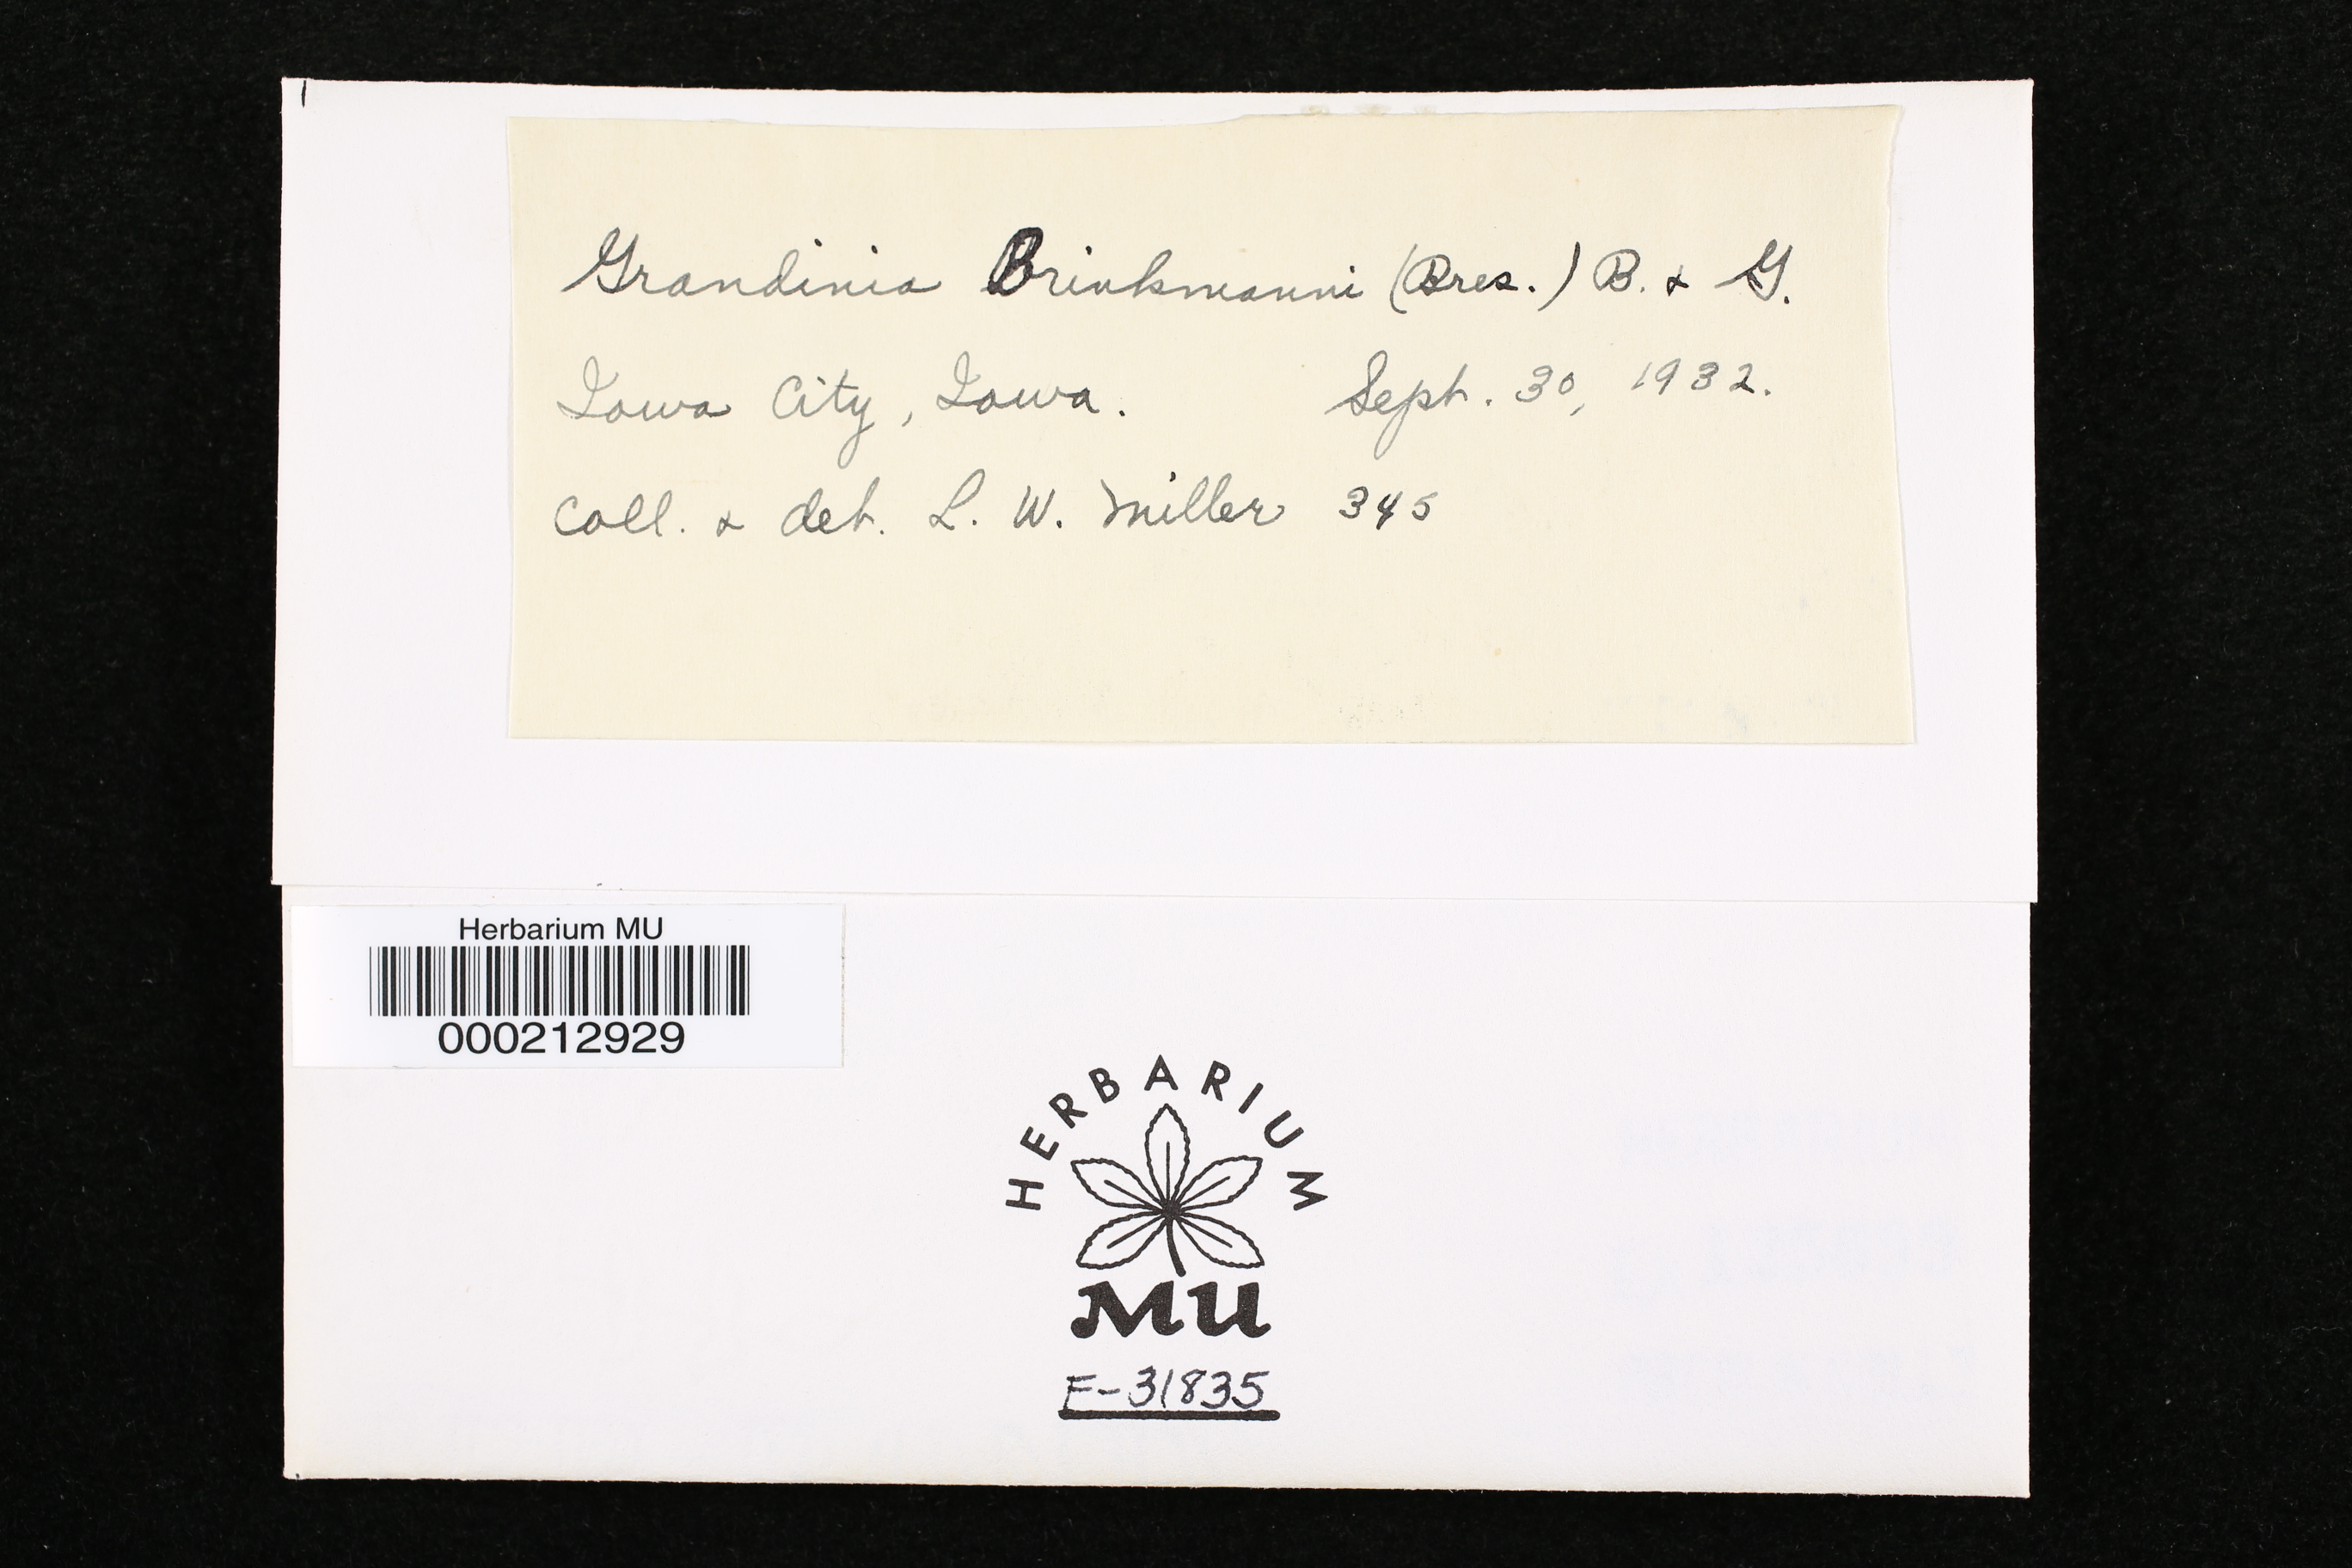 Grandinia Brinkmanni (Bres.) B. & G.
Iowa City, Iowa. Sept. 30, 1932.
Coll. & det. L. W. Miller 345
Herbarium MU
000212929
HERBARIUM
MU
F-31835